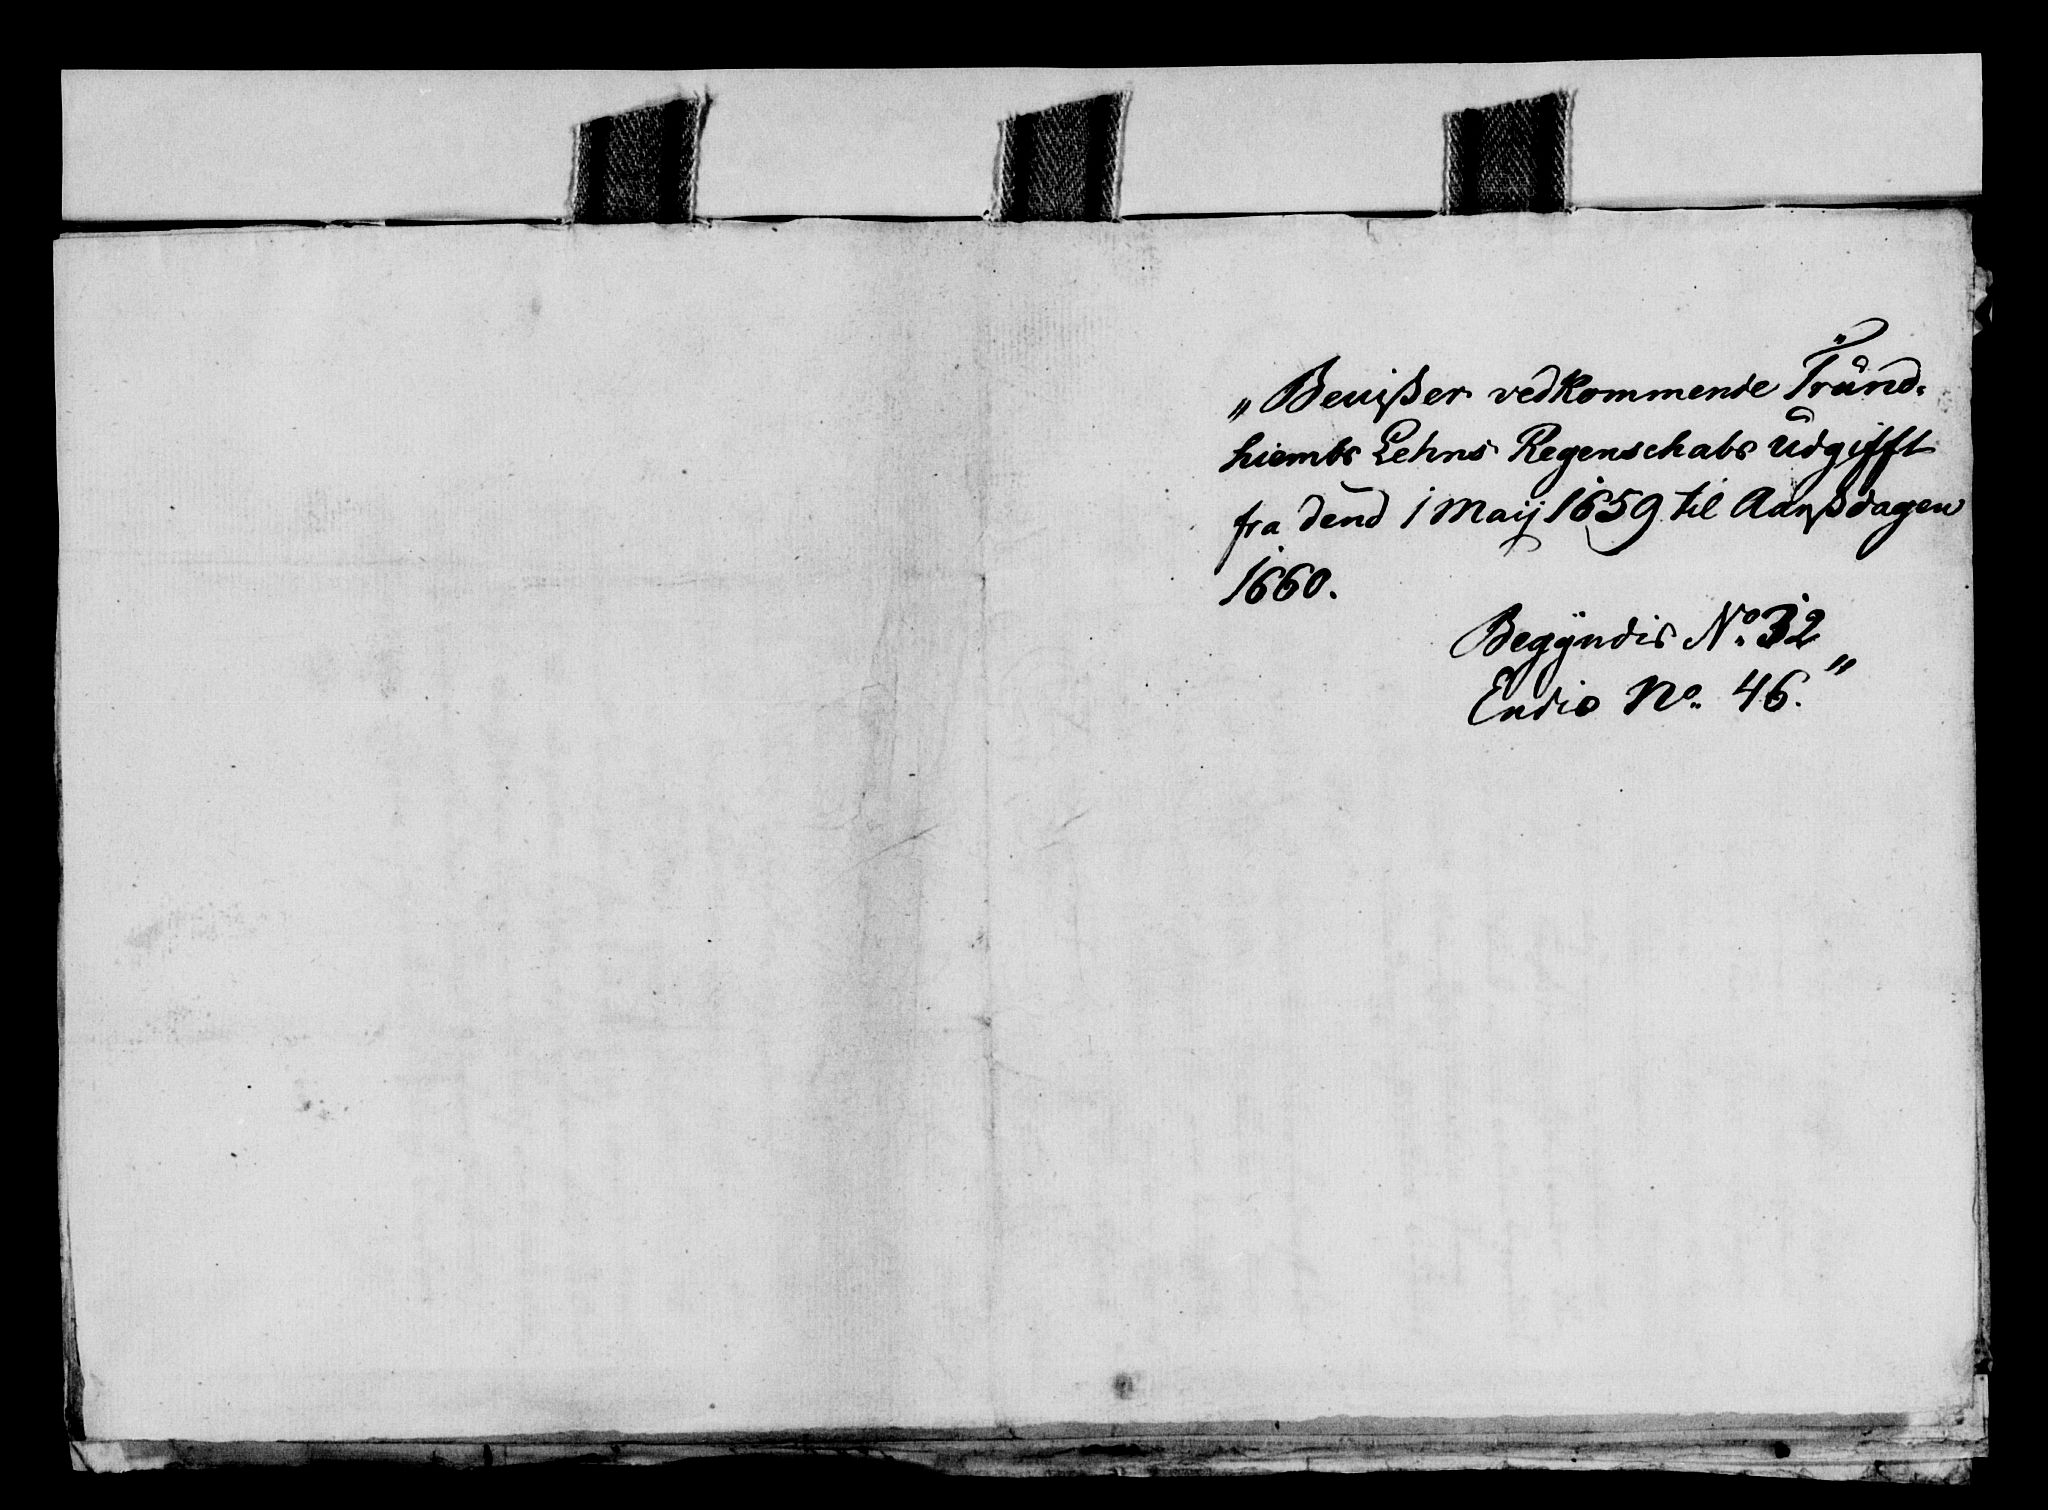 „Beuißer vedkommende Trund-
hiembs Lehns Regenschabs Udgifft
fra dend 1 Maij 1659 til Aarßdagen
1660.
Begÿndis No. 32
Endis No. 46."